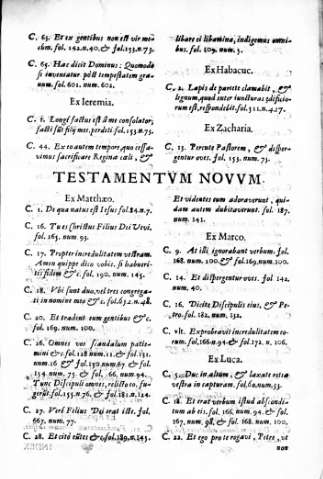 C. 63. Et ex gentibus non est vir mecum. fol. 162. n. 40. & fol. 155. n. 75.
C. 65. Hæc dicit Dominus: Quomodo
si inveniatur post tempestatem granum. fol. 601. num. 602.
Ex Ieremia.
C. 1. Longe factus est à me consolator,
facti sũt filij mei perditi fol. 155. n. 75.
C. 44. Ex eo autem tempore, quo cessavimus sacrificare Reginæ cæli, &
libare ei libamina, indigemus omnibus. fol. 109. num. 5.
Ex Habacuc.
C. 2. Lapis de pariete clamabit, &
lignum, quod inter iuncturas ędificiorum est, respondebit. fol. 312. n. 417.
Ex Zacharia.
C. 13. Percute Pastorem, & dispergentur oves. fol. 155. num. 75.
TESTAMENTVM NOVVM.
Ex Matthæo.
C. 1. De qua natus est Iesus fol. 84. n. 7.
C. 16. Tu es Christus Filius Dei Vivi.
fol. 165. num. 93.
C. 17. Propter incredulitatem vestram.
Amen quippe dico vobis, si habueritis fidem &c. fol. 190. num. 145.
C. 18. Vbi sunt duo, vel tres congregati in nomine meo &c. fol. 632. n. 48.
C. 20. Et tradent eum gentibus &c.
fol. 169. num. 100.
C. 26. Omnes vos scandalum patiemini &c. fol. 128 num. 11. & fol. 131.
num. 16 & fol. 150. num. 67 & fol.
154 num. 75 & fol. 66. num. 94.
Tunc Discipuli omnes, relicto eo, fugerũt. fol. 155. n. 76. & fol. 181. n. 124.
C. 27. Verè Filius Dei erat iste. fol.
667, num. 77.
C. 28. Et citò exite &c. fol. 189. n. 143.
Et videntes eum adoraverunt, quidam autem dubitaverunt. fol. 187.
num. 141.
Ex Marco.
C. 9. At illi ignorabant verbum. fol.
168. num. 100. & fol. 169. num. 100.
C. 14. Et dispergentur oves. fol. 142.
num. 40.
C. 16. Dicite Discipulis eius, & Petro. fol. 182. num. 132.
C. vlt. Exprobravit incredulitatem eorum. fol. 166. n. 94. & fol. 172. n. 106.
Ex Luca.
C. 5. Duc in altum, & laxate retia
vestra in capturam. fol. 60. num. 55.
C. 18. Et erat verbum istud absconditum ab eis. fol. 166. num. 94. & fol.
167. num. 98. & fol. 168. num. 100.
C. 22. Et ego pro te rogavi, Petre, ut
non